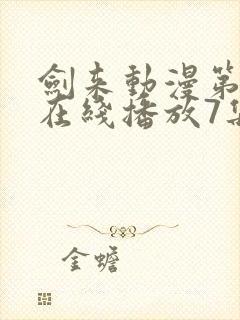 劍来動漫第
在綫播放7集
金蟾